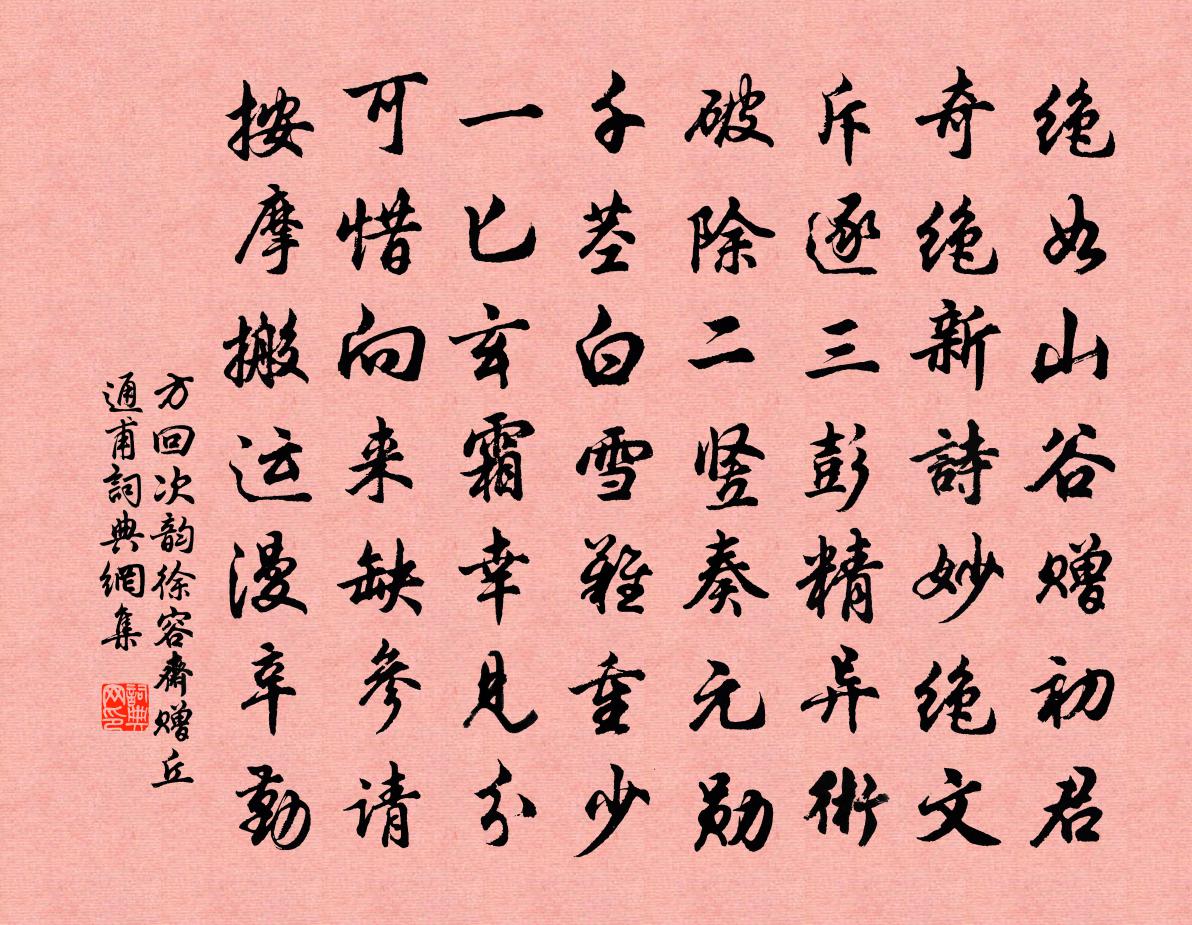 绝如山谷赠初君
奇绝新詩妙绝文
斥逐三彭精异術
破除二竖奏元勋
千茎白雪难重少
一匕玄霜幸见分
可惜向来缺参请
按摩搬运漫辛勤
方回次韵徐容斋赠丘
通甫詞典網集
詞典网印